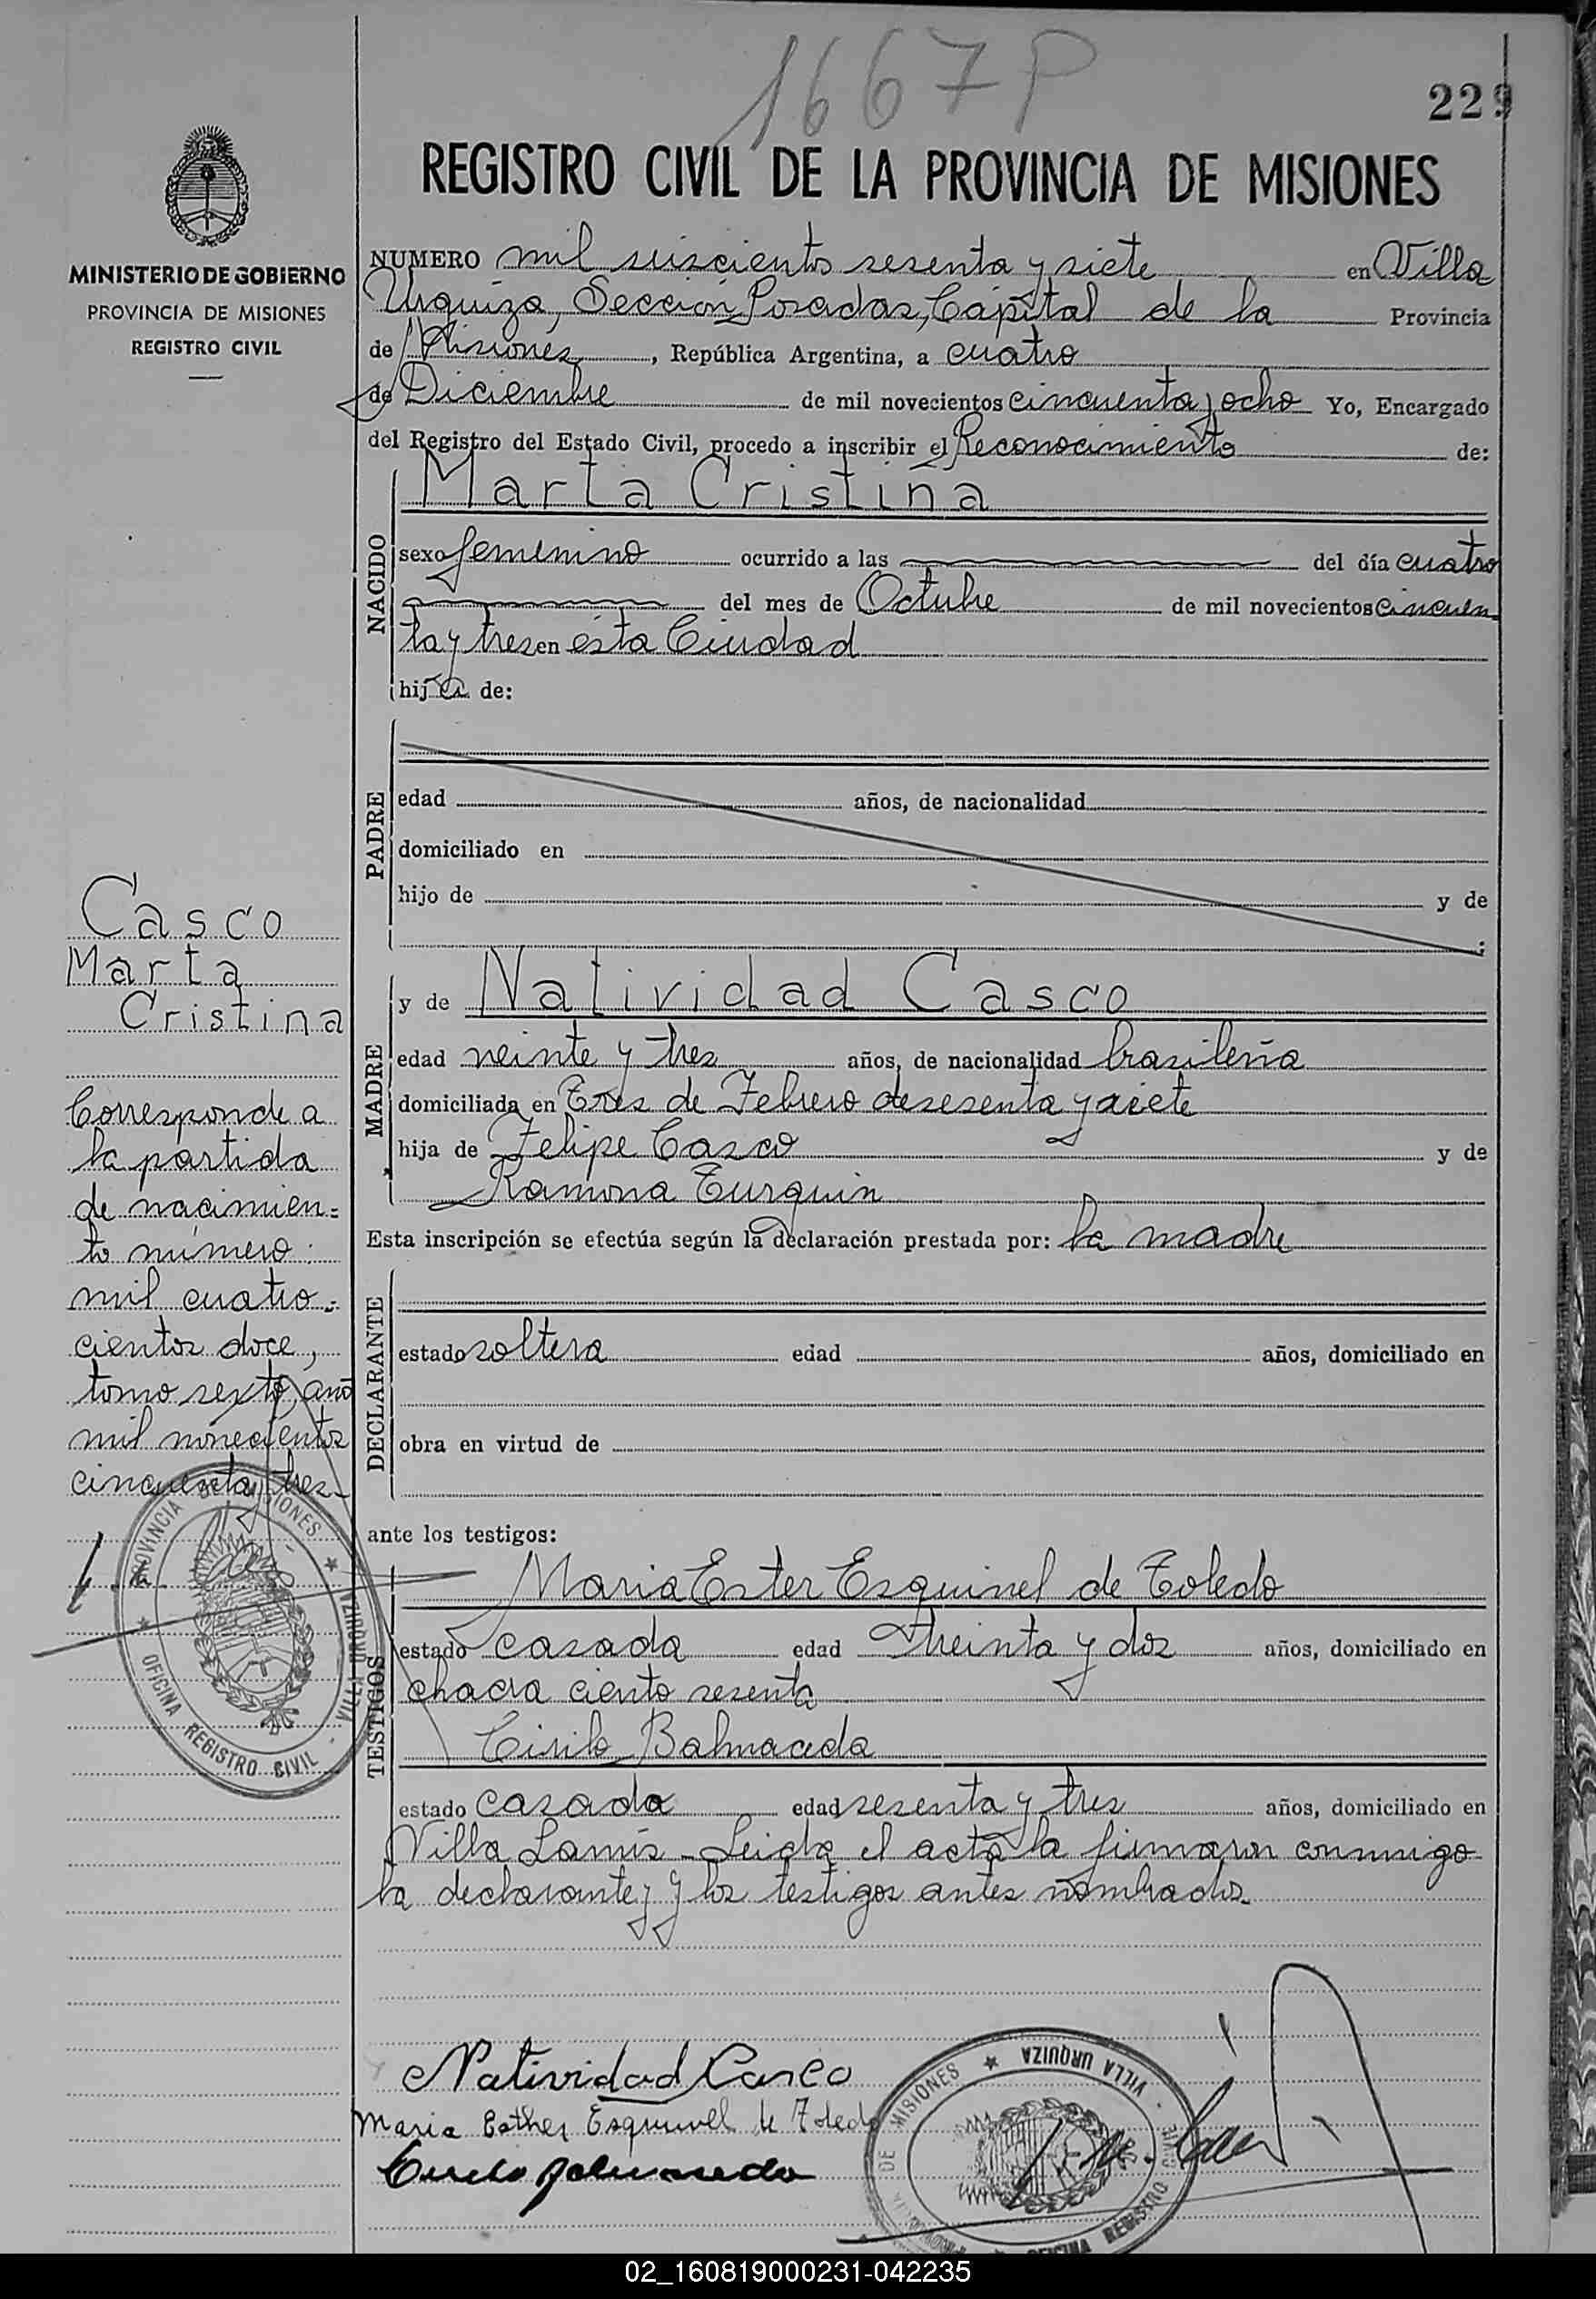 1667 P
229
REGISTRO CIVIL DE LA PROVINCIA DE MISIONES
MINISTERIO DE GOBIERNO
PROVINCIA DE MISIONES
REGISTRO CIVIL
NUMERO mil seiscientos sesenta y siete en Villa
Urquiza, Sección Posadas, Capital de la Provincia
de Misiones, República Argentina, a cuatro
de Diciembre de mil novecientos cincuenta y ocho Yo, Encargado
del Registro del Estado Civil, procedo a inscribir el Reconocimiento de:
NACIDO
Marta Cristina
sexo femenino ocurrido a las del día cuatro
del mes de Octubre de mil novecientos cincuen
ta y tres en ésta Ciudad
hija de:
PADRE
edad años, de nacionalidad
domiciliado en
hijo de y de
;
MADRE
y de Natividad Casco
edad veinte y tres años, de nacionalidad brasileña
domiciliada en Tres de Febrero desesenta y siete
hija de Felipe Casco y de
Ramona Turquin
Esta inscripción se efectúa según la declaración prestada por: la madre
DECLARANTE
estado soltera edad años, domiciliado en
obra en virtud de
ante los testigos:
TESTIGOS
Maria Ester Esquivel de Toledo
estado casada edad treinta y dos años, domiciliado en
chacra ciento sesenta
Cirilo Balmaceda
estado casado edad sesenta y tres años, domiciliado en
Villa Lanús - Leida el acta la firmaron conmigo
la declarante y los testigos antes nombrados
Casco
Marta
Cristina
Corresponde a
la partida
de nacimien=
to número
mil cuatro=
cientos doce,
tomo sexto, año
mil novecientos
cincuenta y tres-
PROVINCIA DE MISIONES
VILLA URQUIZA
OFICINA REGISTRO CIVIL
Natividad Casco
Maria Esther Esquivel de Toledo
Cirilo Balmaceda
DE MISIONES
VILLA URQUIZA
OFICINA REGISTRO
02_160819000231-042235